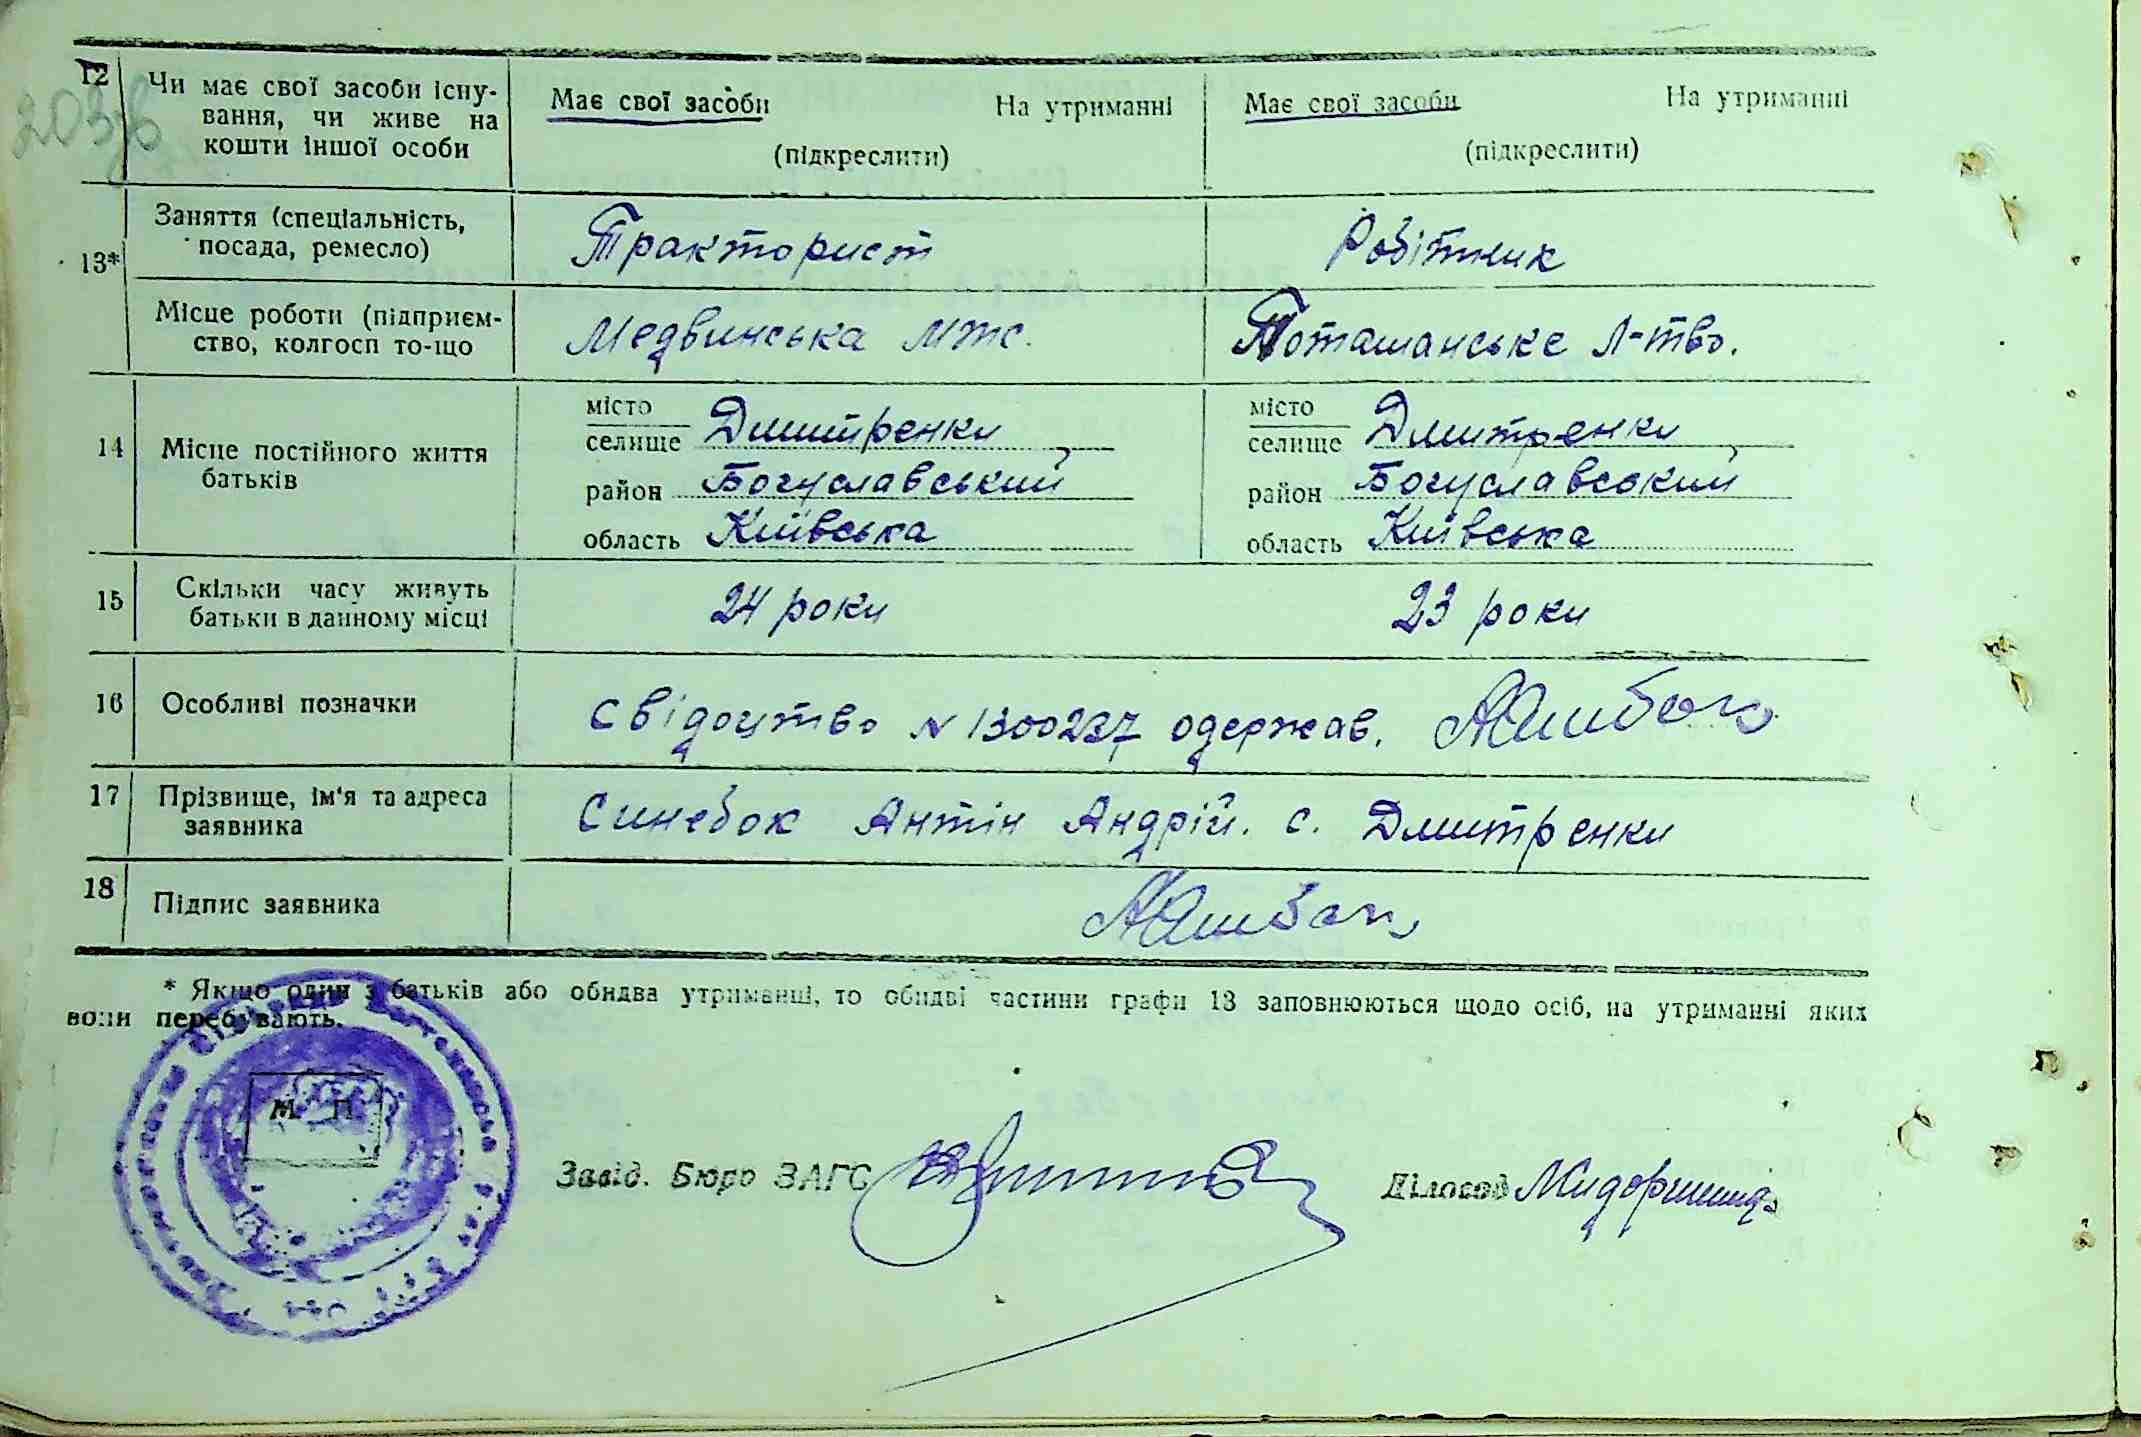 12 Чи має свої засоби існу-
вання, чи живе на
кошти іншої особи
Має свої засоби На утриманні
(підкреслити)
Має свої засоби На утриманні
(підкреслити)
203
13* Заняття (спеціальність,
посада, ремесло)
Тракторист
Робітник
Місце роботи (підприєм-
ство, колгосп то-що
Медвинська МТС.
Поташанське Л-тво.
14 Місце постійного життя
батьків
місто
селище Дмитренки
район Богуславський
область Київська
місто
селище Дмитренки
район Богуславський
область Київська
15 Скільки часу живуть
батьки в данному місці
24 роки
23 роки
16 Особливі позначки
Свідоцтво N 1300237 одержав.
17 Прізвище, ім'я та адреса
заявника
Синебок Антін Андрій. с. Дмитренки
18 Підпис заявника
* Якщо один з батьків або обидва утриманці, то обидві частини графи 13 заповнюються щодо осіб, на утриманні яких
вони перебувають.
М П
Завід. Бюро ЗАГС
Діловод